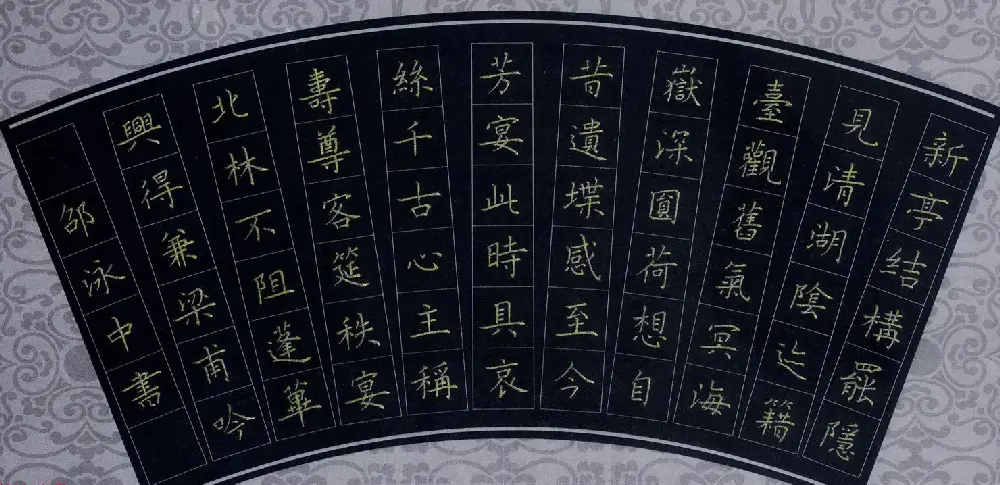 新亭结構罷隱
見清湖陰迄籍
臺觀舊氣冥海
嶽深圓荷想自
昔遺堞感至今
芳宴此時具哀
絲千古心主稱
壽尊客筵秩宴
北林不阻蓬蓽
興得兼梁甫吟
邵泳中書